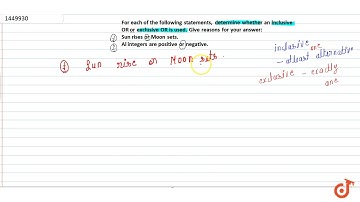 1449930
For each of the following statements, determine whether an inclusive
OR or exclusive OR is used. Give reasons for your answer:
1 Sun rises or Moon sets.
2 Al integers are positive or negative.
inclusive one
- atleast alternative
exclusive - exactly
one
1 Sun rise or Moon sets.